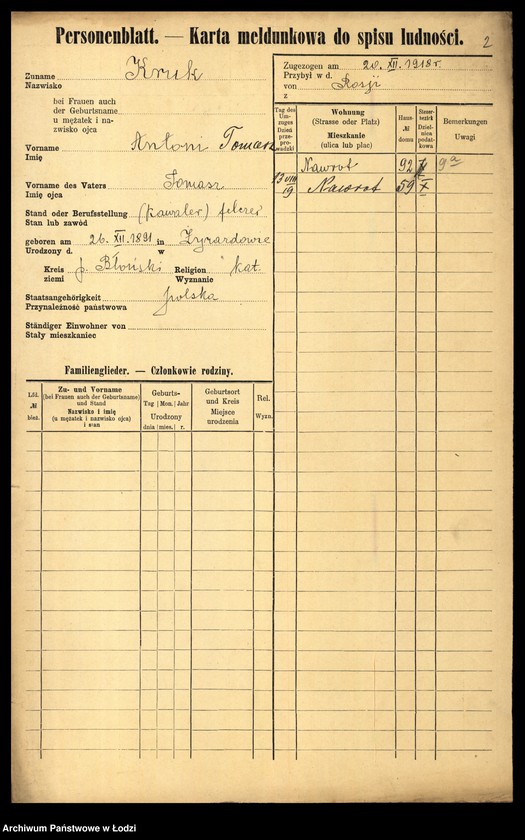 Personenblatt. — Karta meldunkowa do spisu ludności.
2
Zuname
Nazwisko
Kruk
bei Frauen auch
der Geburtsname
u mężatek i na-
zwisko ojca
Vorname
Imię
Antoni Tomasz
Vorname des Vaters
Imię ojca
Tomasz
Stand oder Berufsstellung
Stan lub zawód
(kawaler) felczer
geboren am 26. XII. 1891 in Żyrardowie
Urodzony d. w
Kreis
ziemi
p. Błoński
Religion
Wyznanie
kat.
Staatsangehörigkeit
Przynależność państwowa
polska
Ständiger Einwohner von
Stały mieszkaniec
Zugezogen am 20. XII. 1918 r.
Przybył w d.
von
z
Rosji
Tag des Um-zuges
Dzień prze-pro-wadzki
Wohnung
(Strasse oder Platz)
Mieszkanie
(ulica lub plac)
Haus-
№
domu
Steuer-bezirk
Dziel-nica podat-kowa
Bemerkungen
Uwagi
Nawrot 92 9a
13 VIII 19 Nawrot 59 X
Familienglieder. — Członkowie rodziny.
Lfd.
№
bież.
Zu- und Vorname
(bei Frauen auch der Geburtsname)
und Stand
Nazwisko i imię
(u mężatek i nazwisko ojca)
i stan
Geburts-
Tag Mon. Jahr
Urodzony
dnia mies. r.
Geburtsort
und Kreis
Miejsce
urodzenia
Rel.
Wyzn.
Archiwum Państwowe w Łodzi